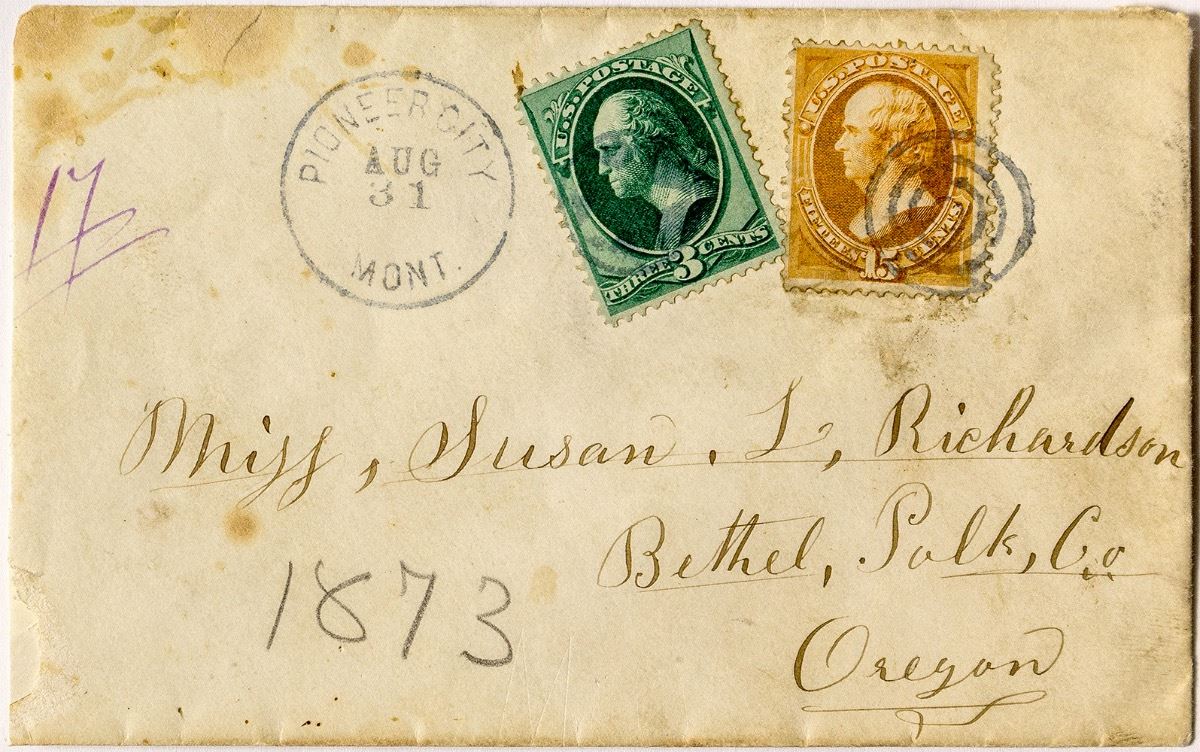 17
PIONEER CITY
AUG
31
MONT.
U.S. POSTAGE
THREE 3 CENTS
U.S. POSTAGE
FIFTEEN 15 CENTS
Miss, Susan. L, Richardson
Bethel, Polk, Co
Oregon
1873